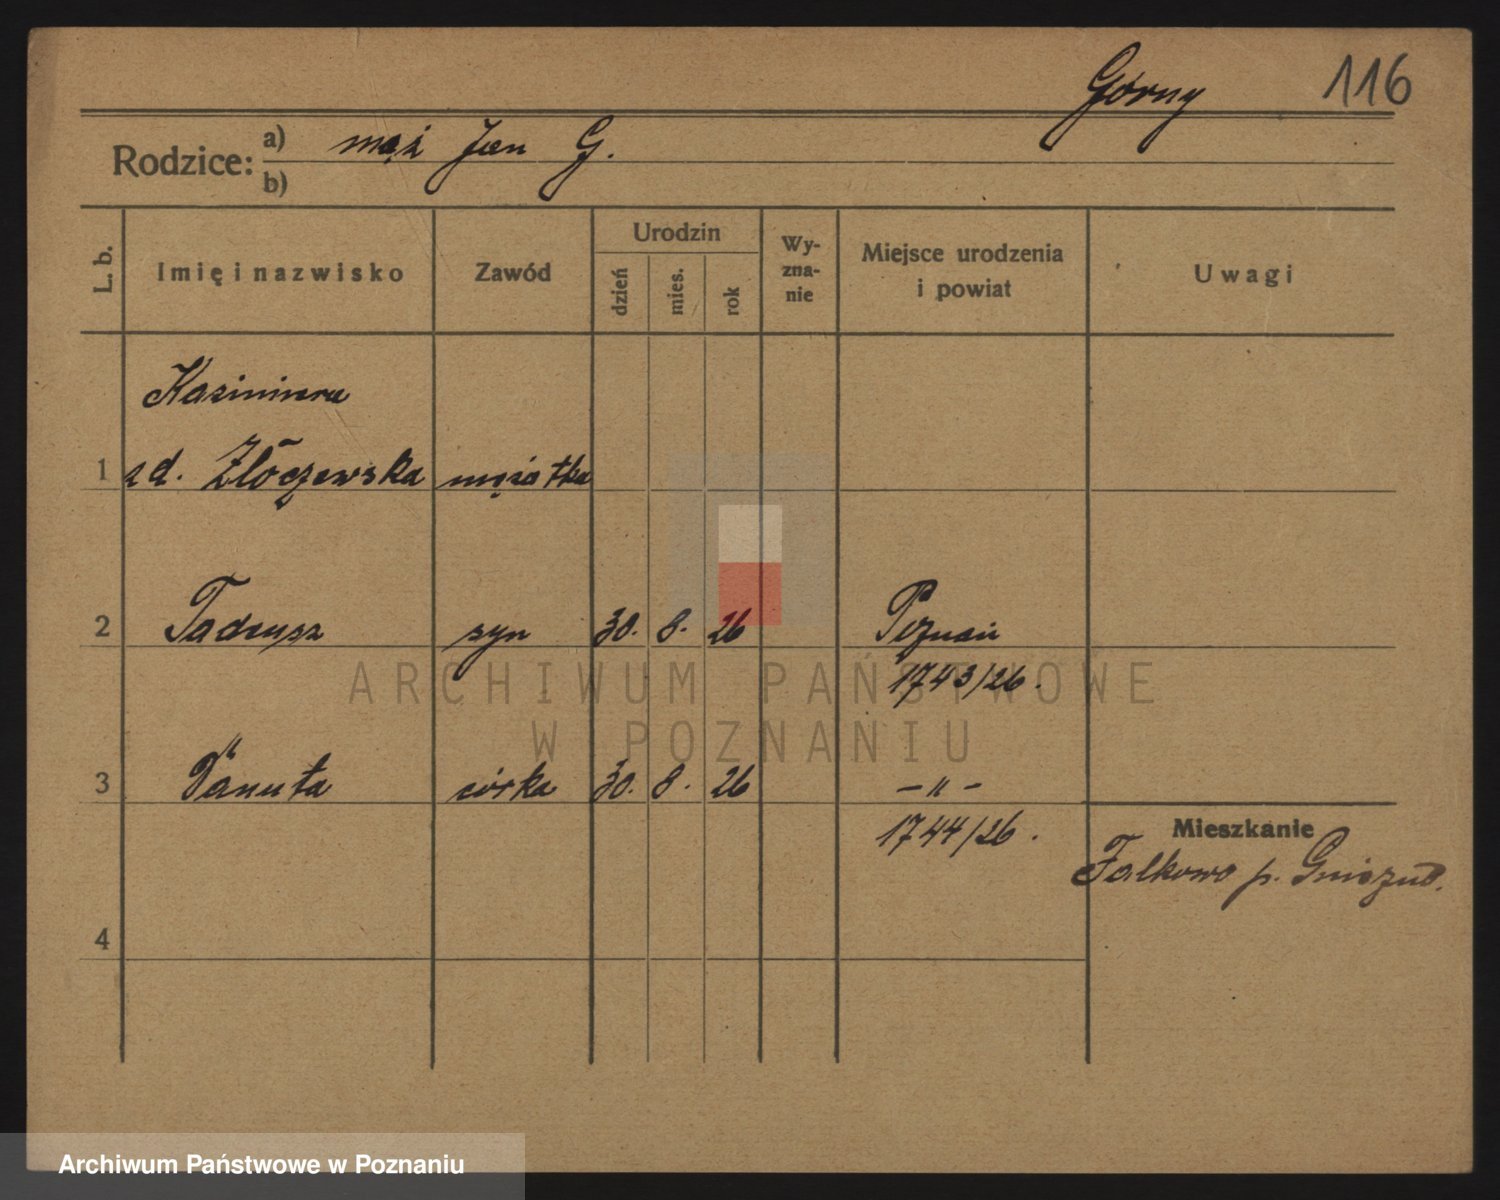 Górny 116
Rodzice: a) mąż Jan G.
b)
L. b. Imię i nazwisko Zawód Urodzin dzień mies. rok Wy-zna-nie Miejsce urodzenia i powiat Uwagi
Kazimiera
1 zd. Złoczewska mężatka
2 Tadeusz syn 30. 8. 26 Poznań
1743/26.
3 Danuta córka 30. 8. 26 - " -
1744/26.
Mieszkanie
Fałkowo p. Gniezno.
4
ARCHIWUM PAŃSTWOWE
W POZNANIU
Archiwum Państwowe w Poznaniu